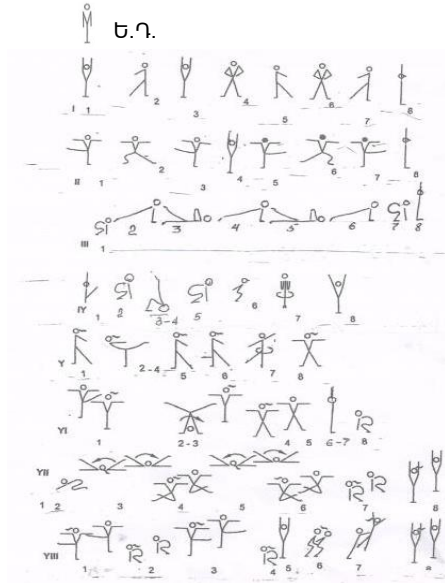 Ե.Դ.
I 1 2 3 4 5 6 7 8
II 1 2 3 4 5 6 7 8
III 1 2 3 4 5 6 7 8
IY 1 2 3-4 5 6 7 8
Y 1 2-4 5 6 7 8
YI 1 2-3 4 5 6-7 8
YII 1 2 3 4 5 6 7 8
YIII 1 2 3 4 5 6 7 8